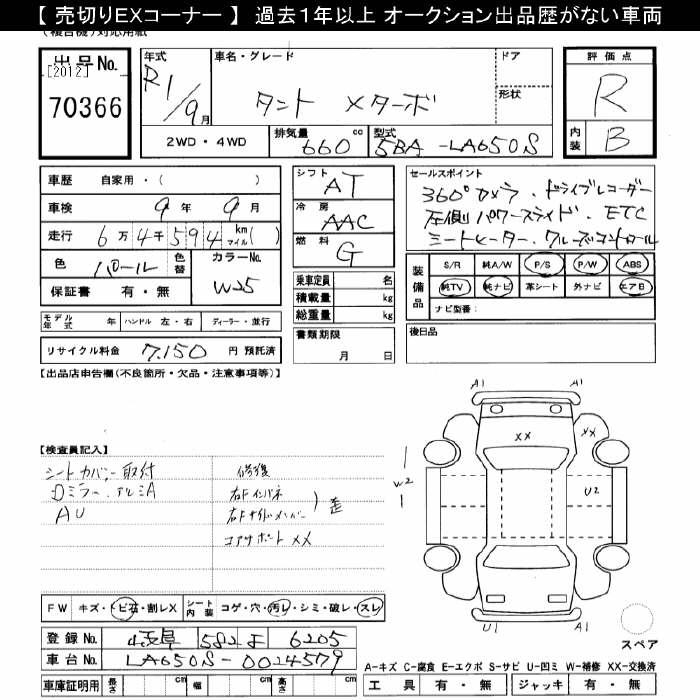 【 売切りEXコーナー 】 過去1年以上 オークション出品歴がない車両
(複合機)対応用紙
出品No.
[2012]
70366
年式 車名・グレード ドア
R1/9月 タント Xターボ 形状
2WD・4WD 排気量 660 cc 型式 5BA-LA650S
評価点
R
内装 B
車歴 自家用・( )
車検 9年 9月
走行 6万4千594 km マイル( )
色 パール 色替 カラーNo. W25
保証書 有・無
モデル年式 年 ハンドル 左・右 ディーラー・並行
リサイクル料金 7,150 円 預託済
シフト AT
冷房 AAC
燃料 G
乗車定員 名
積載量 kg
総重量 kg
書類期限
月 日
セールスポイント
360°カメラ・ドライブレコーダー
左側パワースライド・ETC
シートヒーター・クルーズコントロール
装備品 S/R 純A/W P/S P/W ABS
純TV 純ナビ 革シート 外ナビ エアB
ナビ型番:
後日品
【出品店申告欄(不良箇所・欠品・注意事項等)】
【検査員記入】
シートカバー取付
Dミラー、アルミA
AU
修復
右Fインパネ
右Fサイドメンバー
歪
コアサポートXX
A1 A1
XX XX
W2 U2
U1 A1
スペア
FW キズ・トビ石・割レX シート内装 コゲ・穴・汚レ・シミ・破レ・スレ
登録No. 岐阜 582 え 6205
車台No. LA650S-0024579
車庫証明用 長さ cm 幅 cm 高さ cm
A-キズ C-腐食 E-エクボ S-サビ U-凹ミ W-補修 XX-交換済
工具 有・無 ジャッキ 有・無